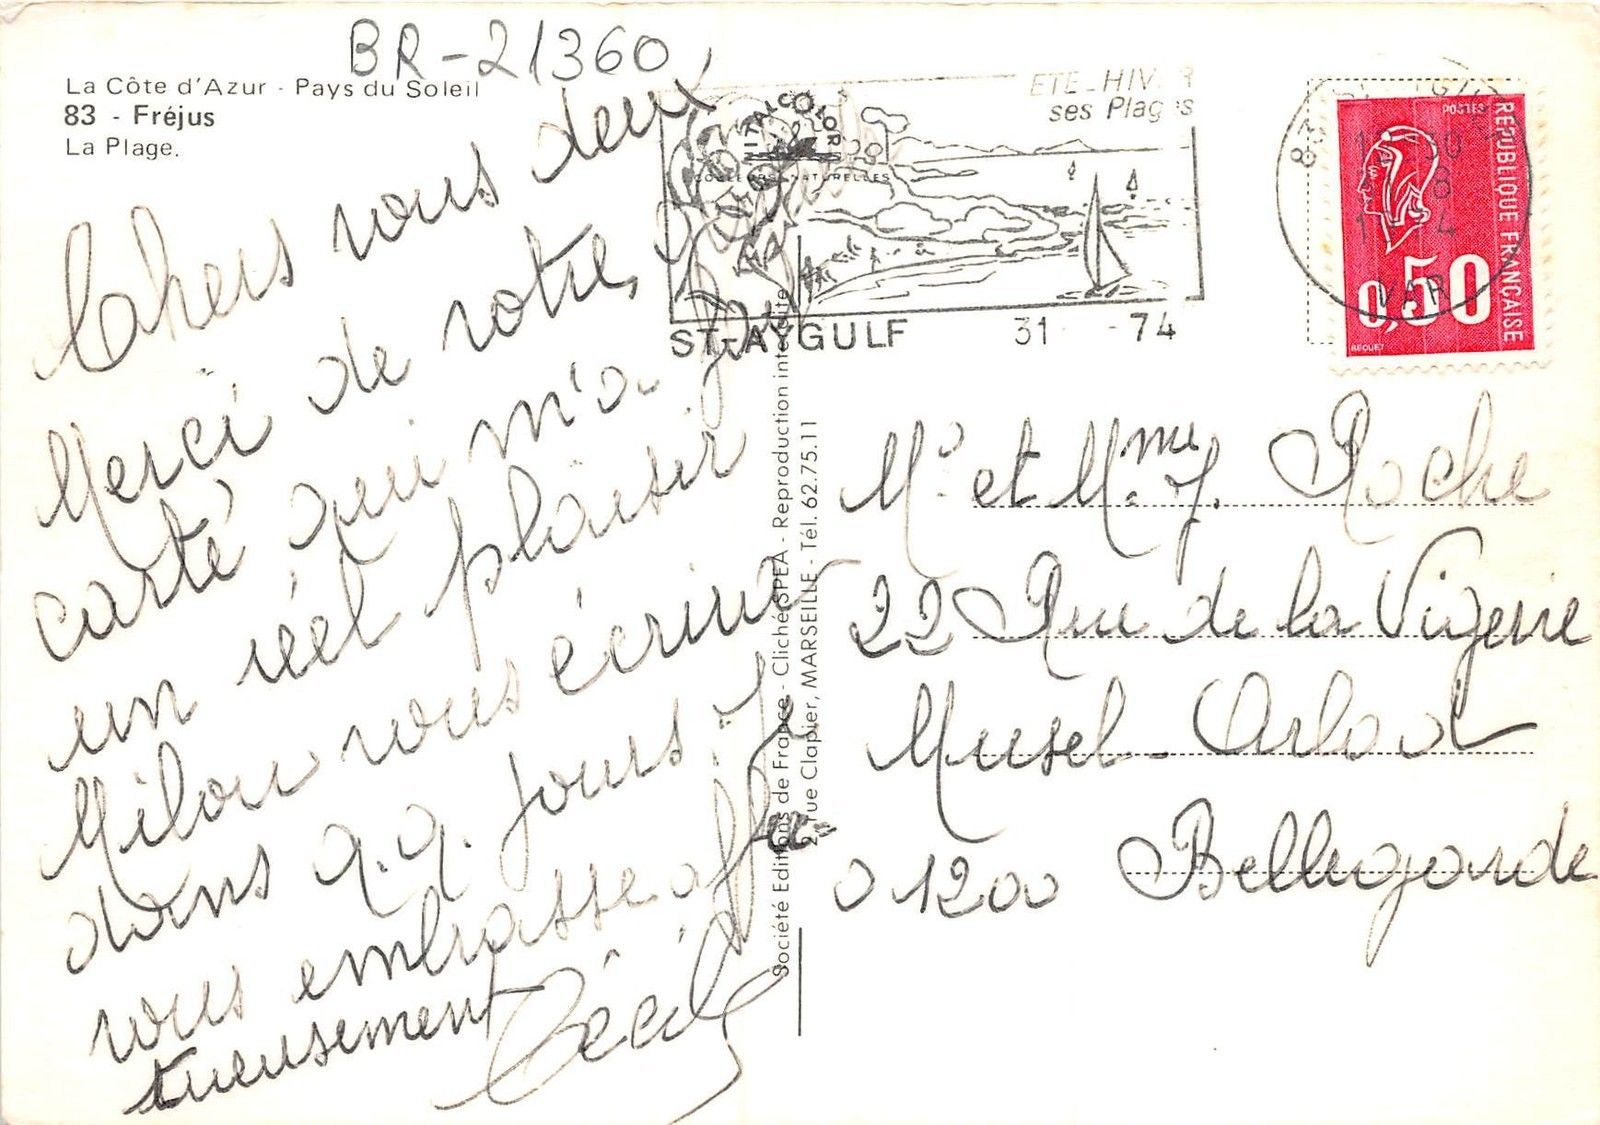 BR-21360
La Côte d'Azur - Pays du Soleil
83 - Fréjus
La Plage.
Chers vous deux,
Merci de votre
carte qui m'a
un réel plaisir
Milou vous écrira
dans q.q. jours. Je
vous embrasse affec
tueusement
Cécile
Société Editions de France - Cliché SPEA - Reproduction interdite
2, rue Clapier, MARSEILLE - Tél. 62.75.11
VITALCOLOR
COULEURS NATURELLES
ETE-HIVER
ses Plages
ST-AYGULF
31 - 74
VAR
POSTES
REPUBLIQUE FRANÇAISE
0,50
BEQUET
Mr et Mme J. Roche
22 Rue de la Vigerie
Musel-Arlod
01200 Bellegarde